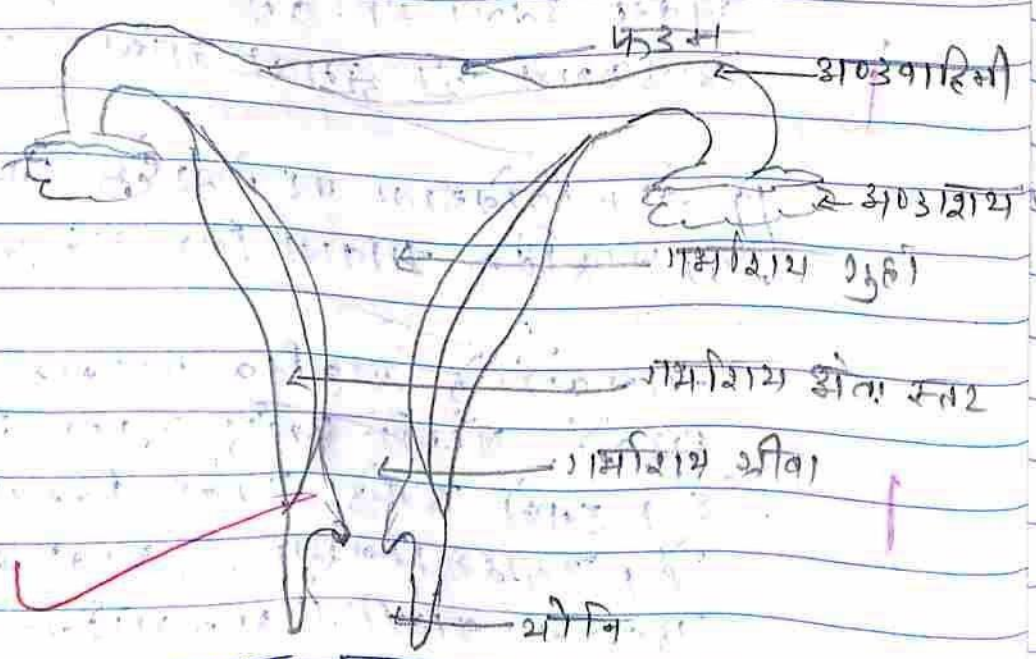 फंडस
अण्डवाहिनी
अण्डाशय
गर्भाशय गुहा
गर्भाशय अंतः स्तर
गर्भाशय ग्रीवा
योनि